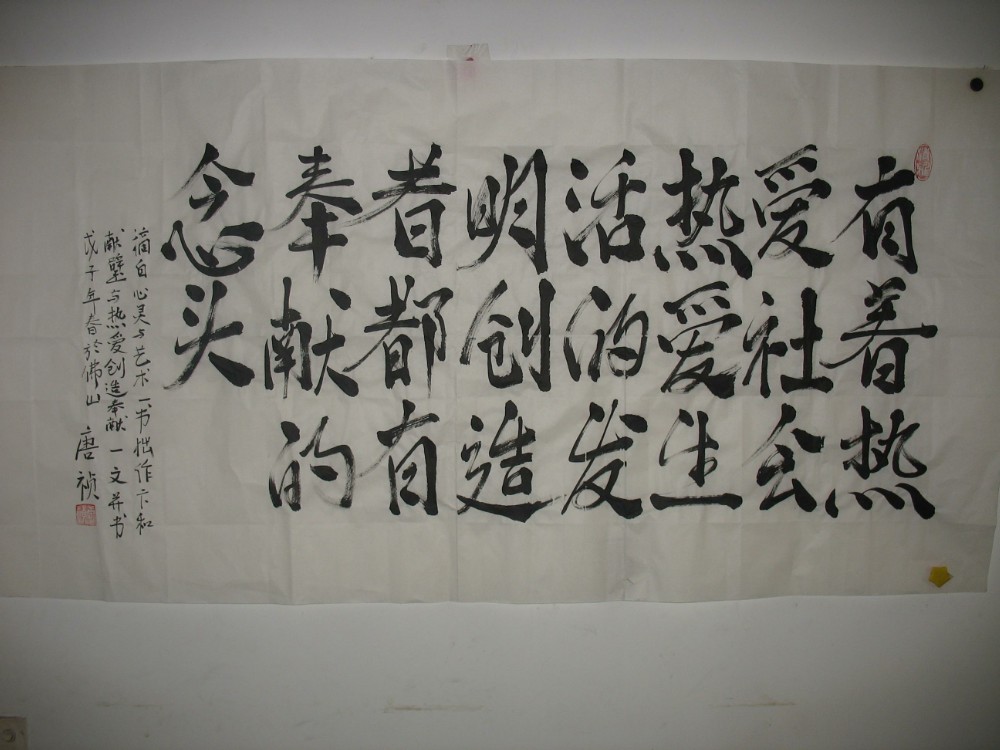 有着热
爱社会
热爱生
活的发
明创造
者都有
奉献的
念头
摘自心灵与艺术一书拙作卞和
献璧与热爱创造奉献一文并书
戊子年春於佛山 唐祯